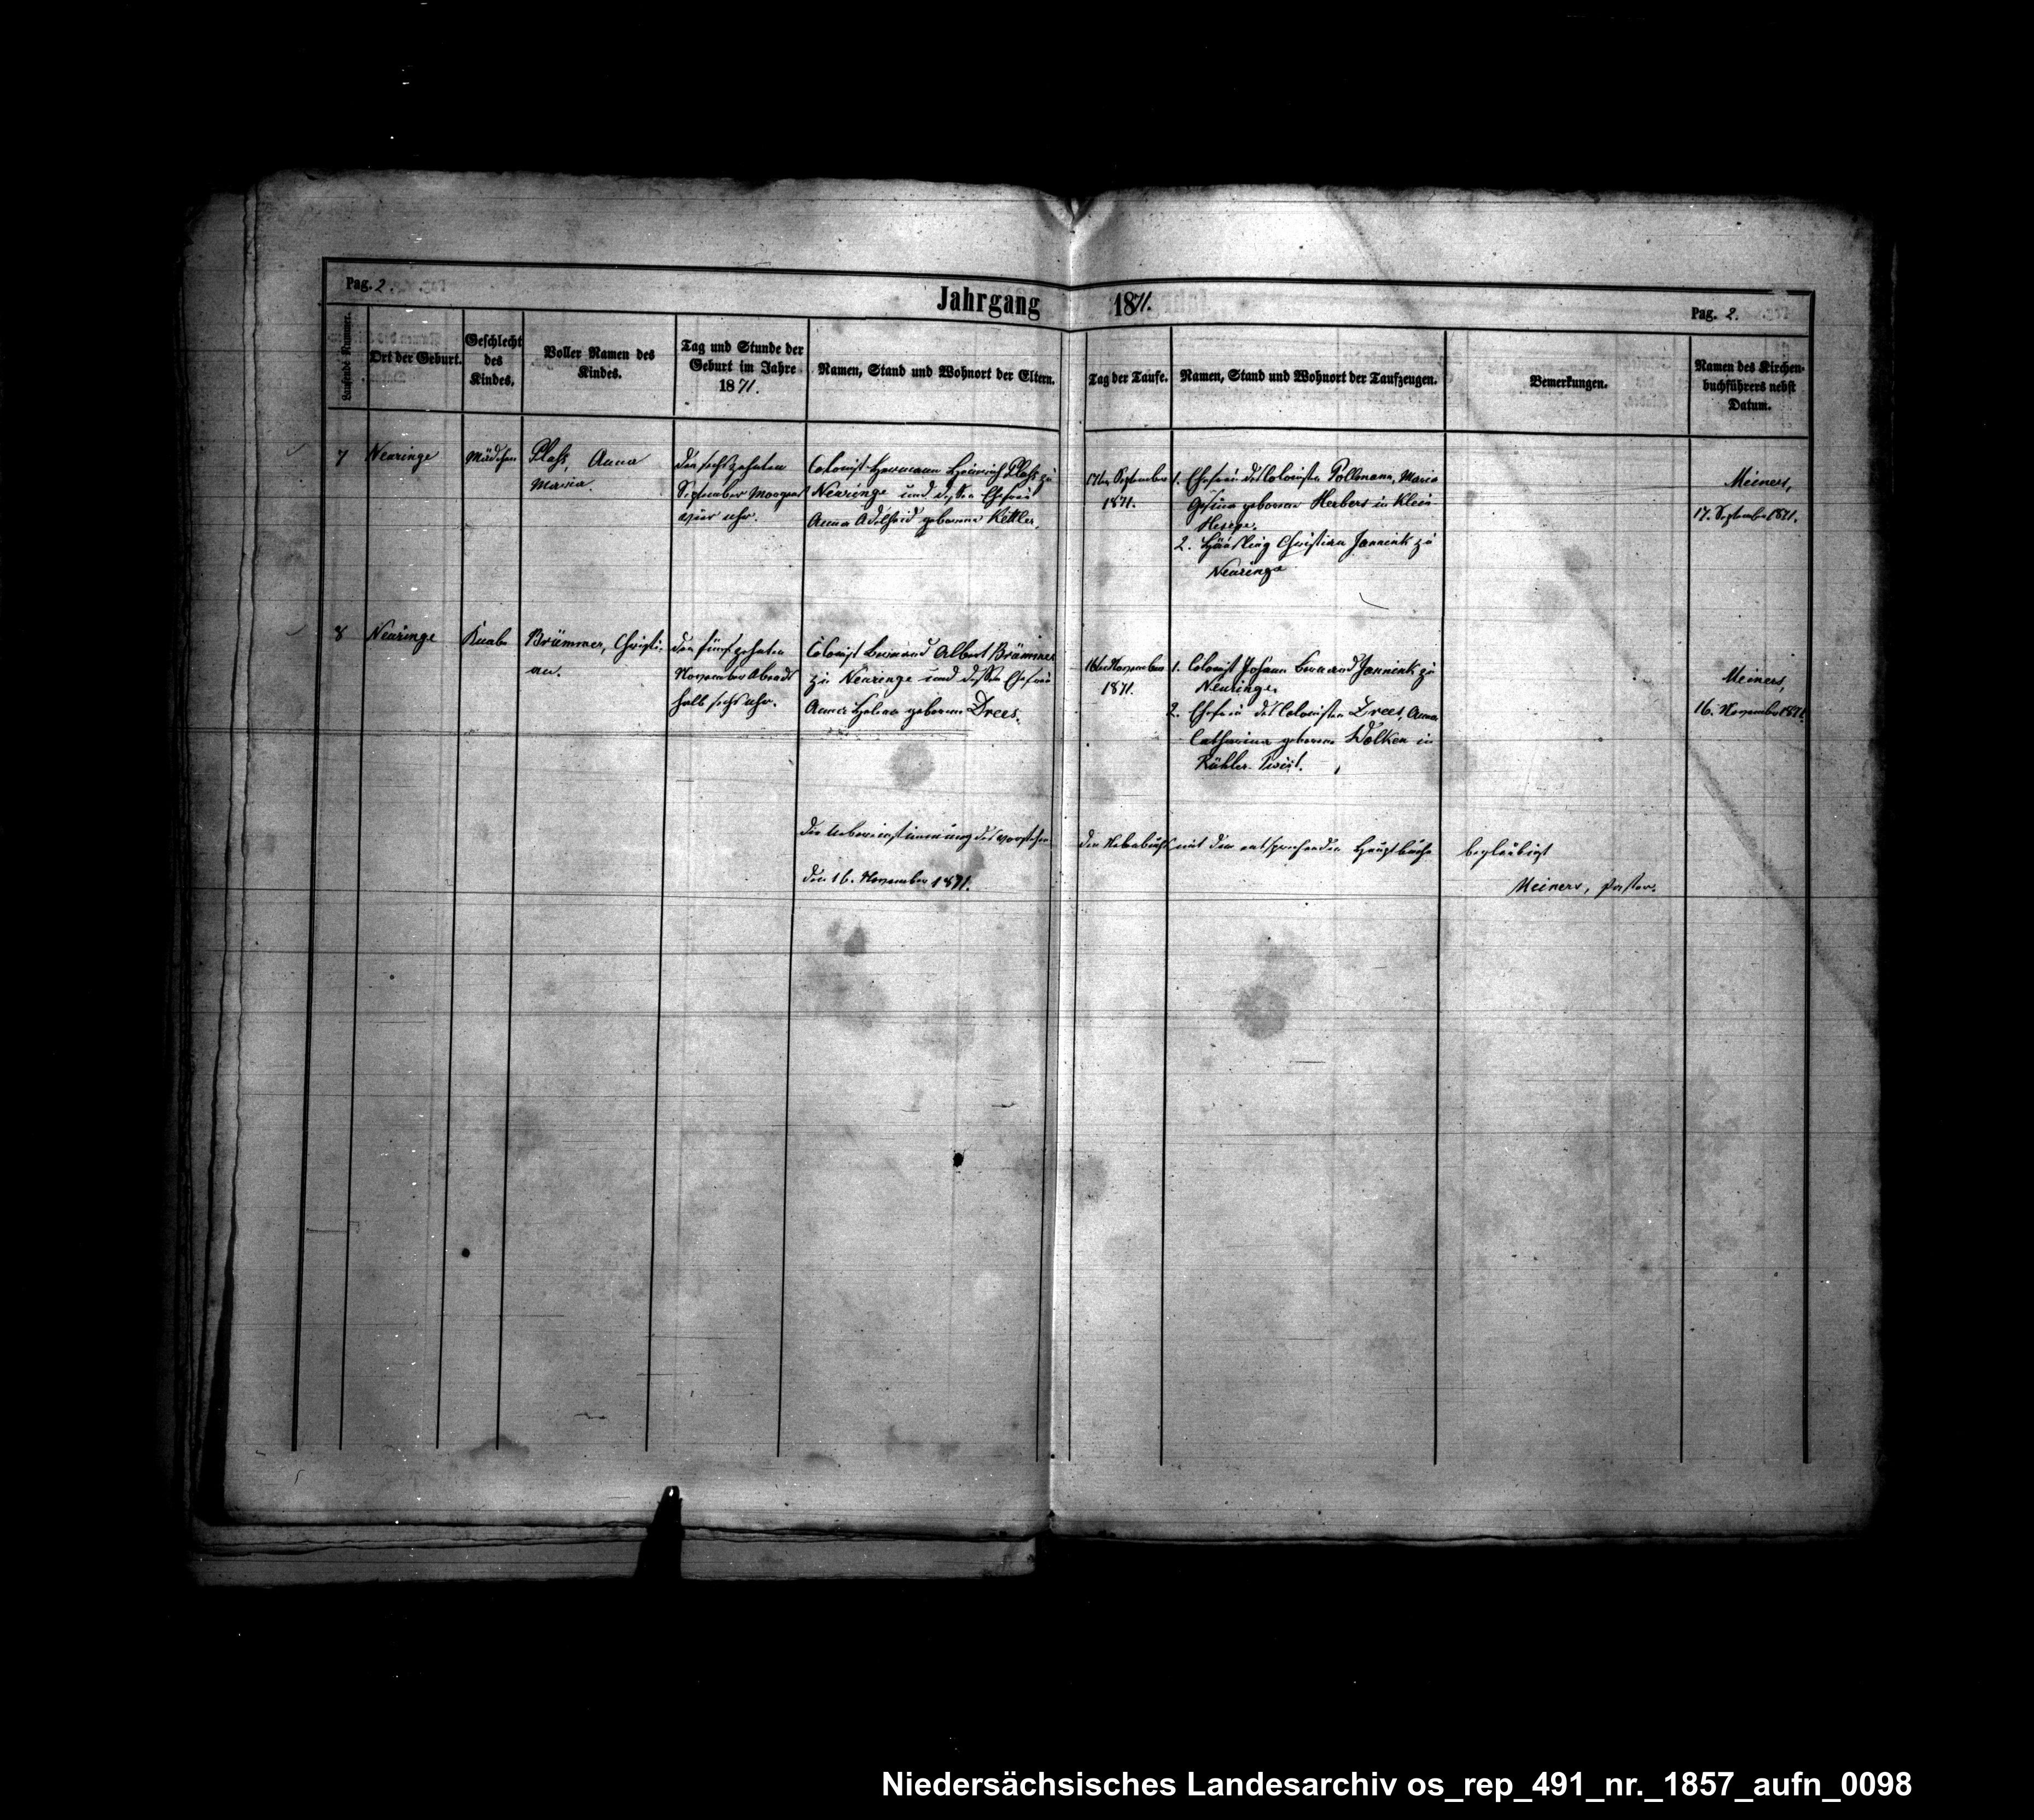 Pag. 2.
Jahrgang 1871.
Pag. 2.
Laufende Nummer.
Ort der Geburt.
Geschlecht
des
Kindes.
Voller Namen des
Kindes.
Tag und Stunde der
Geburt im Jahre
1871.
Namen, Stand und Wohnort der Eltern.
Tag der Taufe.
Namen, Stand und Wohnort der Taufzeugen.
Bemerkungen.
Namen des Kirchen-
buchführers nebst
Datum.
7
Neuringe
Mädchen
Plaß, Anna
Maria.
den sechszehnten
September Morgens
vier Uhr.
Colonist Hermann Heinrich Plaß zu
Neuringe und dessen Ehefrau
Anna Adelheid geborene Kettler.
17ten September
1871.
1. Ehefrau des Colonisten Pollmann, Maria
Gesina geborene Herbers in Klein
Hesepe.
2. Häusling Christian Jannink zu
Neuringe
Meiners,
17. September 1871.
8
Neuringe
Knabe
Brümmer, Christi-
an.
den fünfzehnten
November Abends
halb sechs Uhr.
Colonist Bernard Albert Brümmer
zu Neuringe und dessen Ehefrau
Anna Helena geborene Drees.
16ten November
1871.
1. Colonist Johann Bernard Jannink zu
Neuringe.
2. Ehefrau des Colonisten Drees, Anna
Catharina geborene Wolken in
Rühler-Twist.
Meiners,
16. November 1871.
Die Uebereinstimmung des vorstehen-
den Nebenbuchs mit dem entsprechenden Hauptbuche beglaubigt
den 16. November 1871.
Meiners, Pastor.
Niedersächsisches Landesarchiv os_rep_491_nr._1857_aufn_0098